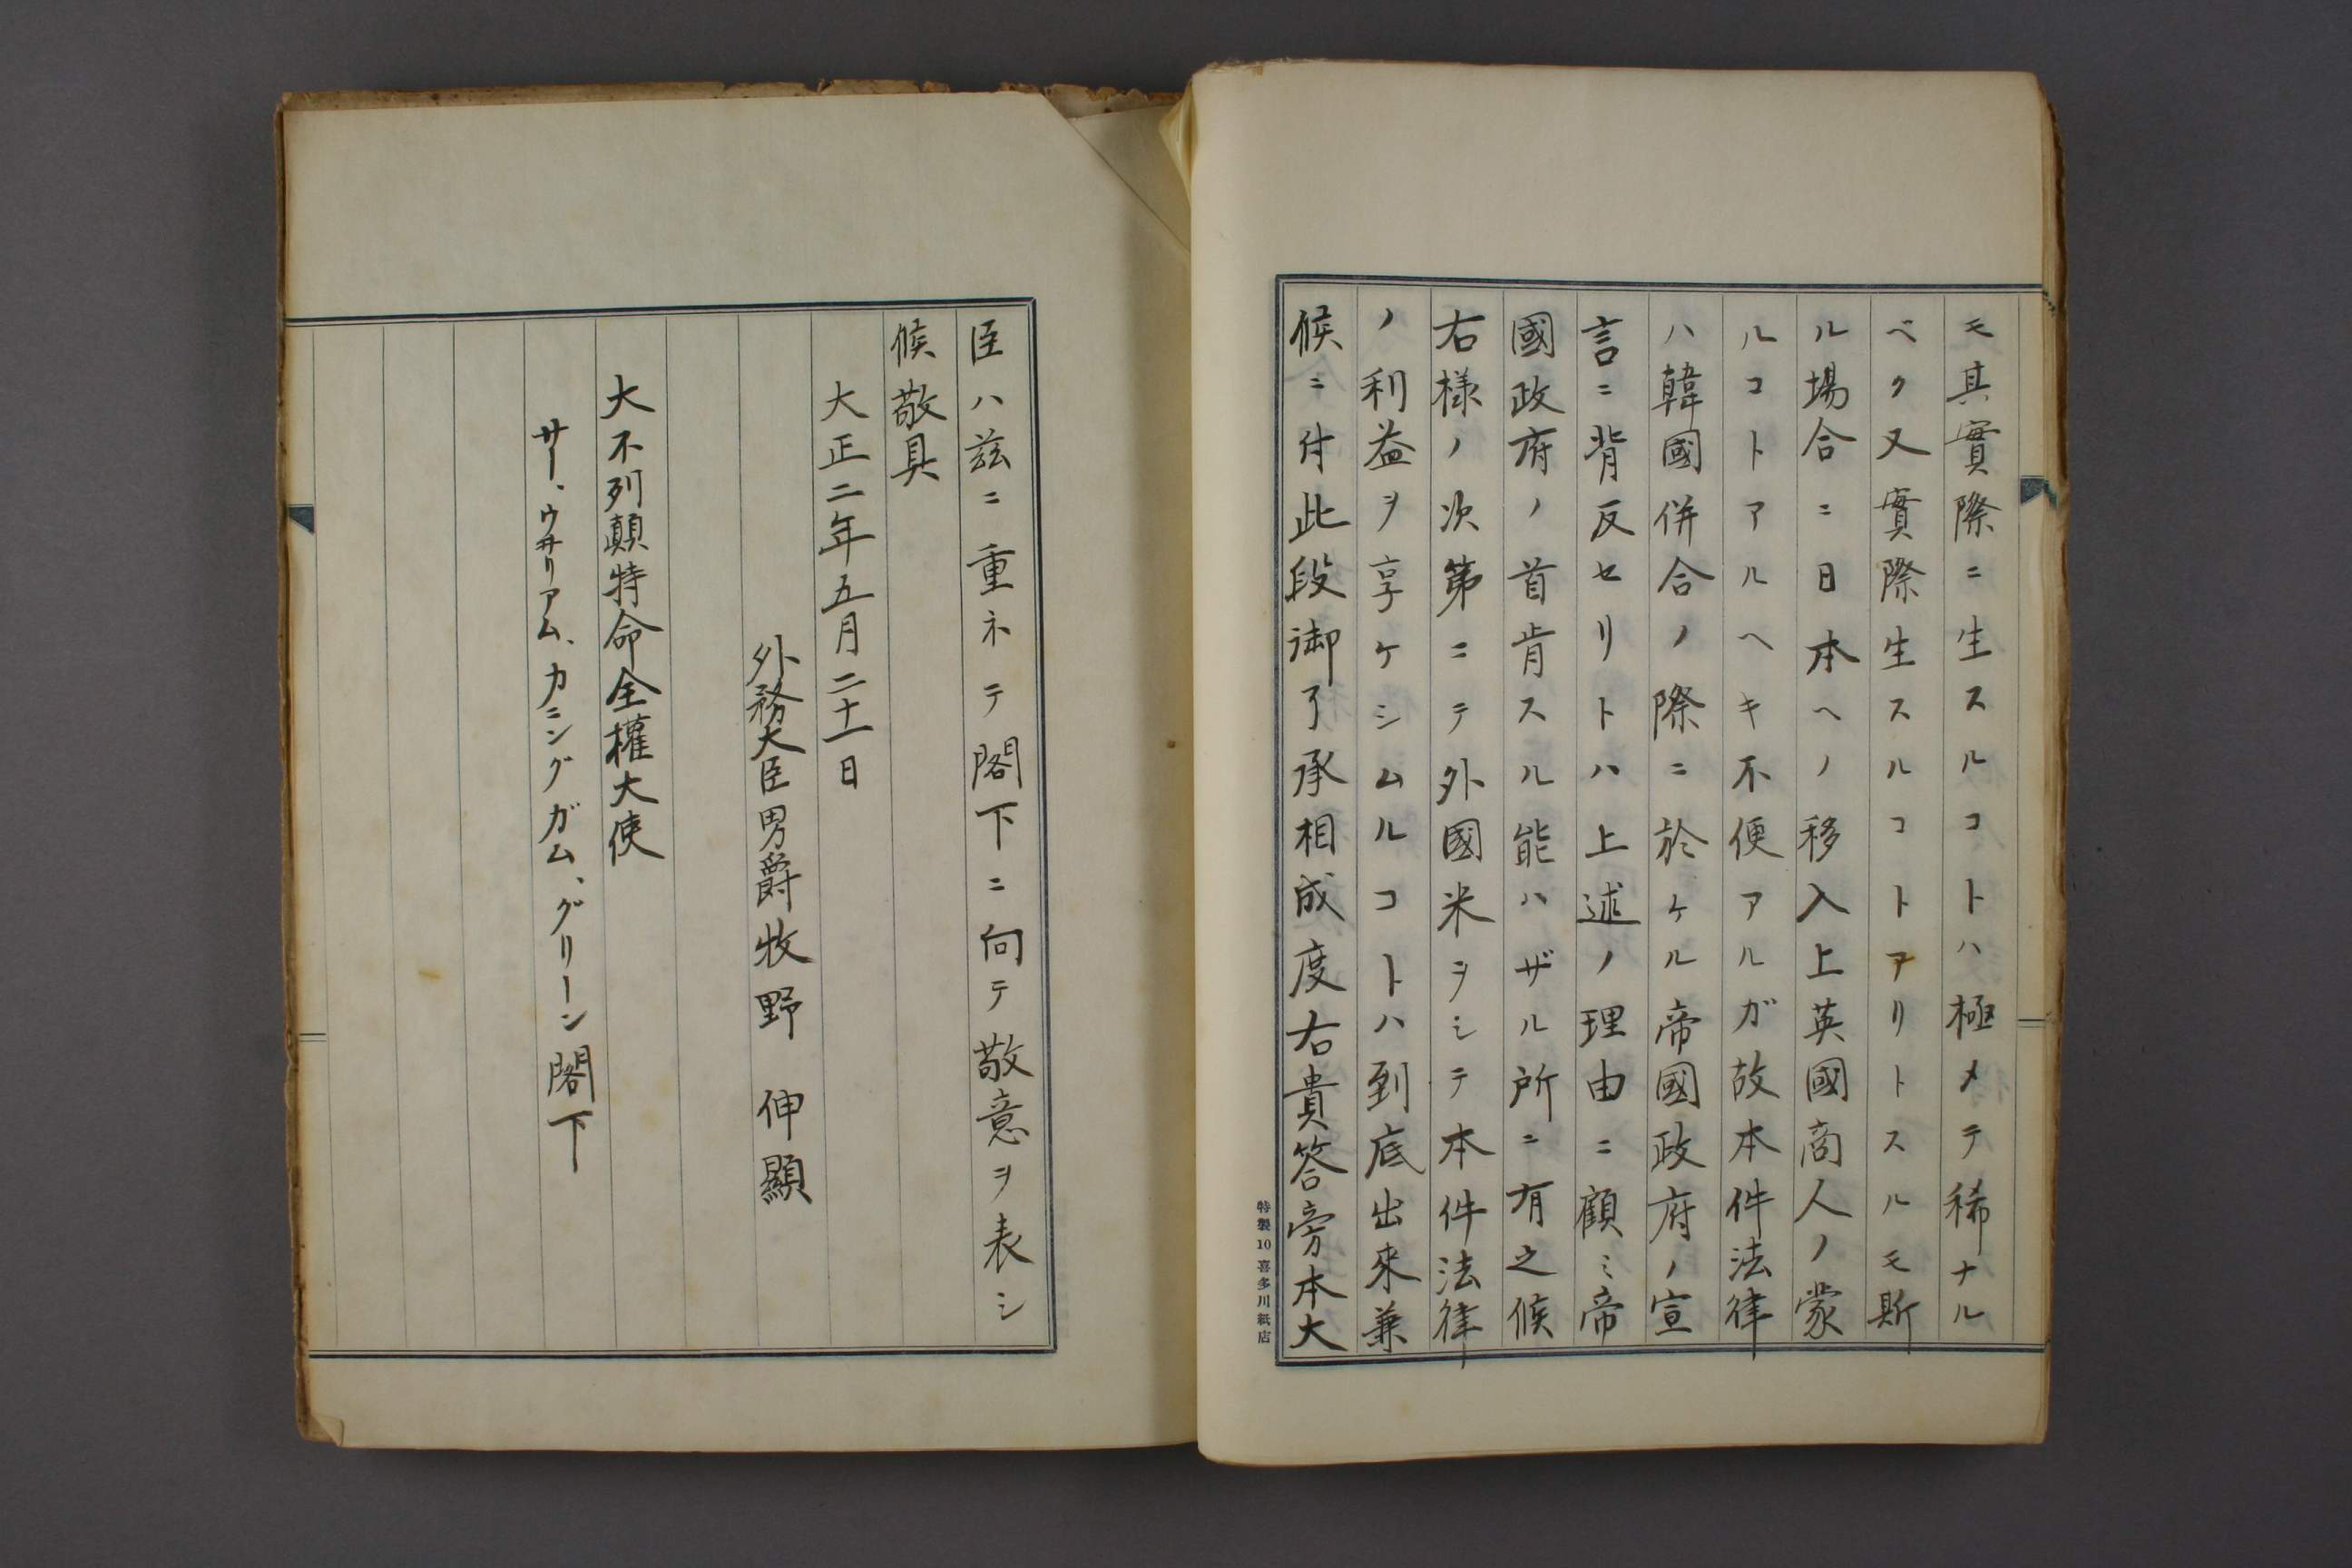 モ其實際ニ生スルコトハ極メテ稀ナル
ベク又實際生スルコトアリトスルモ斯
ル場合ニ日本ヘノ移入上英國商人ノ蒙
ルコトアルヘキ不便アルガ故本件法律
ハ韓國併合ノ際ニ於ケル帝國政府ノ宣
言ニ背反セリトハ上述ノ理由ニ顧ミ帝
國政府ノ首肯スル能ハザル所ニ有之候
右様ノ次第ニテ外國米ヲシテ本件法律
ノ利益ヲ享ケシムルコトハ到底出来兼
候ニ付此段御了承相成度右貴答旁本大
特製10 喜多川紙店
臣ハ茲ニ重ネテ閣下ニ向テ敬意ヲ表シ
候敬具
大正二年五月二十一日
外務大臣男爵牧野伸顯
大不列顛特命全權大使
サー、ウヰリアム、カニングガム、グリーン閣下